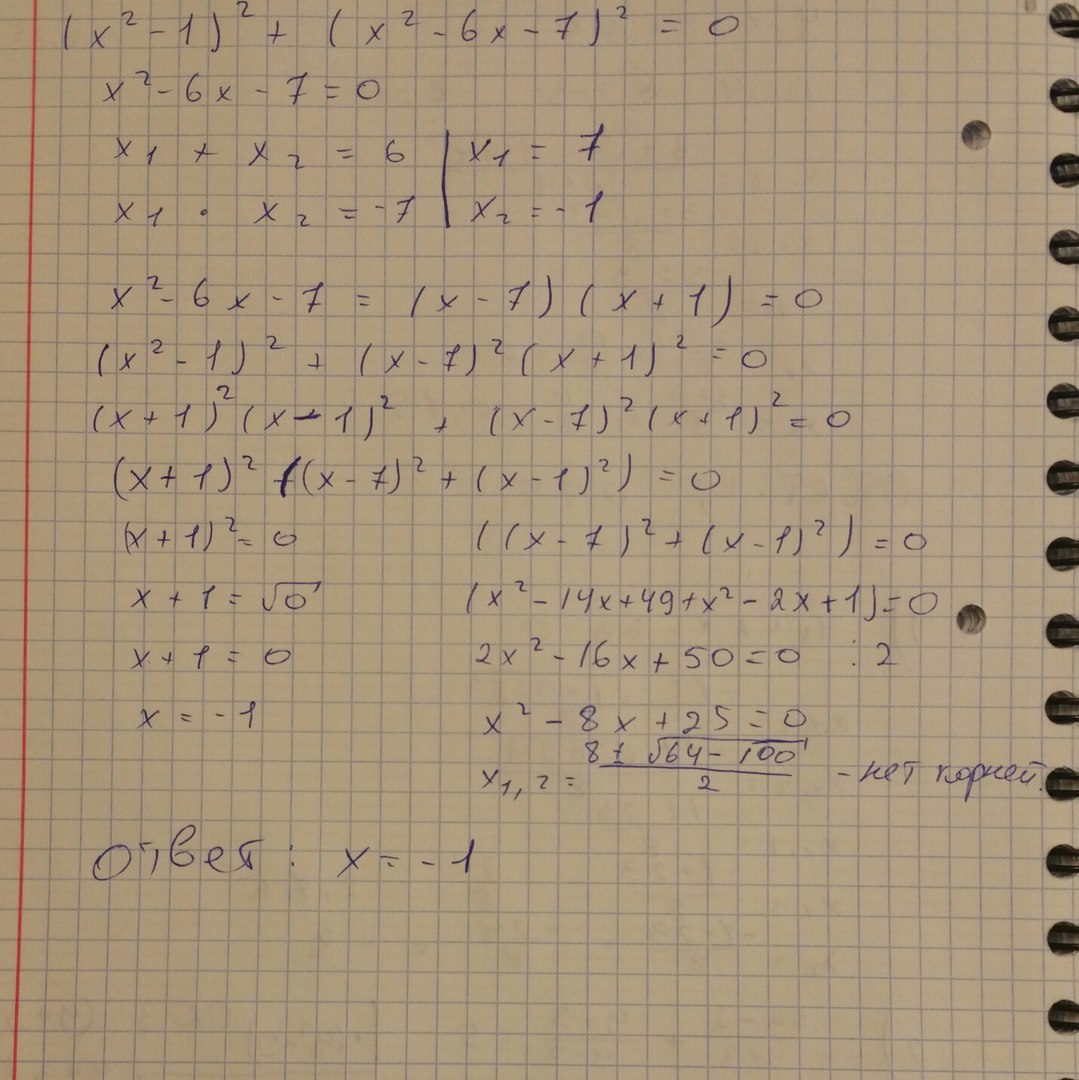 (x² - 1)² + (x² - 6x - 7)² = 0
x² - 6x - 7 = 0
x₁ + x₂ = 6 | x₁ = 7
x₁ · x₂ = -7 | x₂ = -1
x² - 6x - 7 = (x - 7)(x + 1) = 0
(x² - 1)² + (x - 7)²(x + 1)² = 0
(x + 1)²(x - 1)² + (x - 7)²(x + 1)² = 0
(x + 1)² ((x - 7)² + (x - 1)²) = 0
(x + 1)² = 0 ((x - 7)² + (x - 1)²) = 0
x + 1 = √0 (x² - 14x + 49 + x² - 2x + 1) = 0
x + 1 = 0 2x² - 16x + 50 = 0 : 2
x = -1 x² - 8x + 25 = 0
x₁,₂ = (8 ± √(64 - 100))/2 - нет корней.
Ответ: x = -1